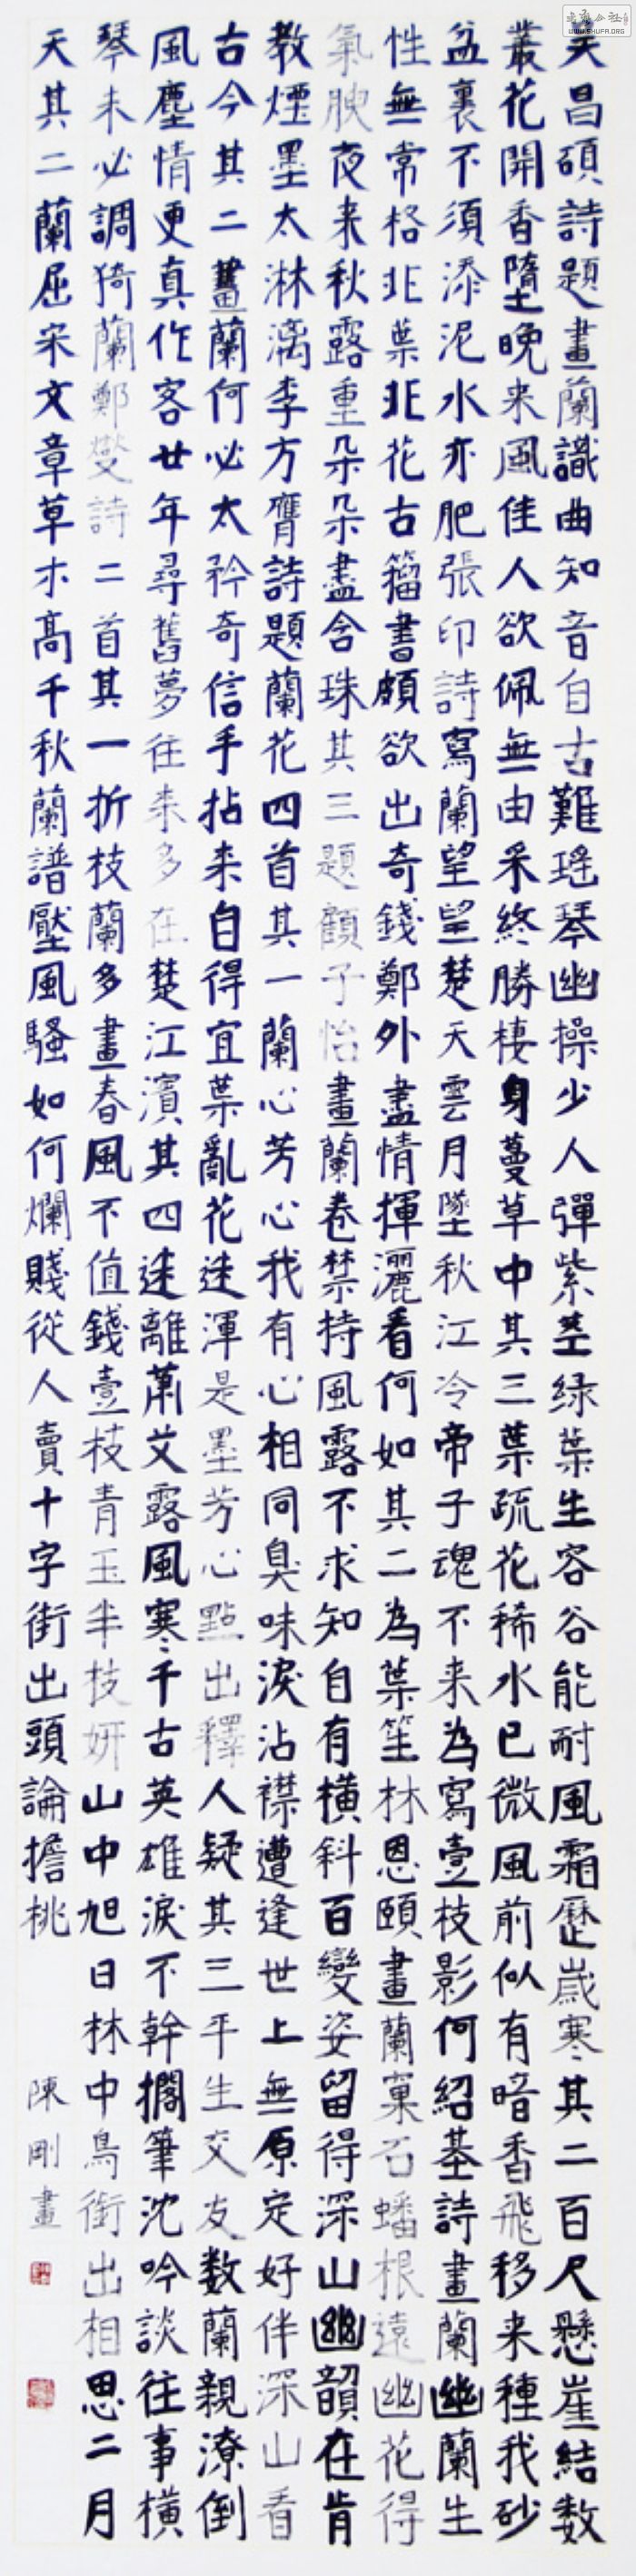 吴昌碩詩題畫蘭識曲知音自古難瑶琴幽操少人彈紫莖绿葉生容谷能耐風霜歷歲寒其二百尺懸崖結数
叢花開香墮晚来風佳人欲佩無由采終勝棲身蔓草中其三葉疏花稀水已微風前似有暗香飛移来種我砂
盆裏不須添泥水亦肥張印詩寫蘭望望楚天雲月墜秋江冷帝子魂不来為寫壹枝影何紹基詩畫蘭幽蘭生
性無常格非葉非花古籀書頗欲出奇錢鄭外盡情揮灑看何如其二為葉笙林恩頤畫蘭菓石蟠根遠幽花得
氣腴夜来秋露重朵朵盡含珠其三題顧子怡畫蘭卷禁持風露不求知自有橫斜百變姿留得深山幽韻在肯
教煙墨太淋漓李方膺詩題蘭花四首其一蘭心芳心我有心相同臭味淚沾襟遭逢世上無原定好伴深山看
古今其二畫蘭何必太矜奇信手拈来自得宜葉亂花迷渾是墨芳心點出釋人疑其三平生交友数蘭親潦倒
風塵情更真作客廿年尋舊夢往来多在楚江濱其四迷離蕭艾露風寒千古英雄淚不幹擱筆沈吟談往事橫
琴未必調猗蘭鄭燮詩二首其一折枝蘭多畫春風不值錢壹枝青玉半枝妍山中旭日林中鳥銜出相思二月
天其二蘭屈宋文章草木高千秋蘭譜壓風騷如何爛賤從人賣十字街出頭論擔桃
陳剛畫
WWW.SHUFA.ORG